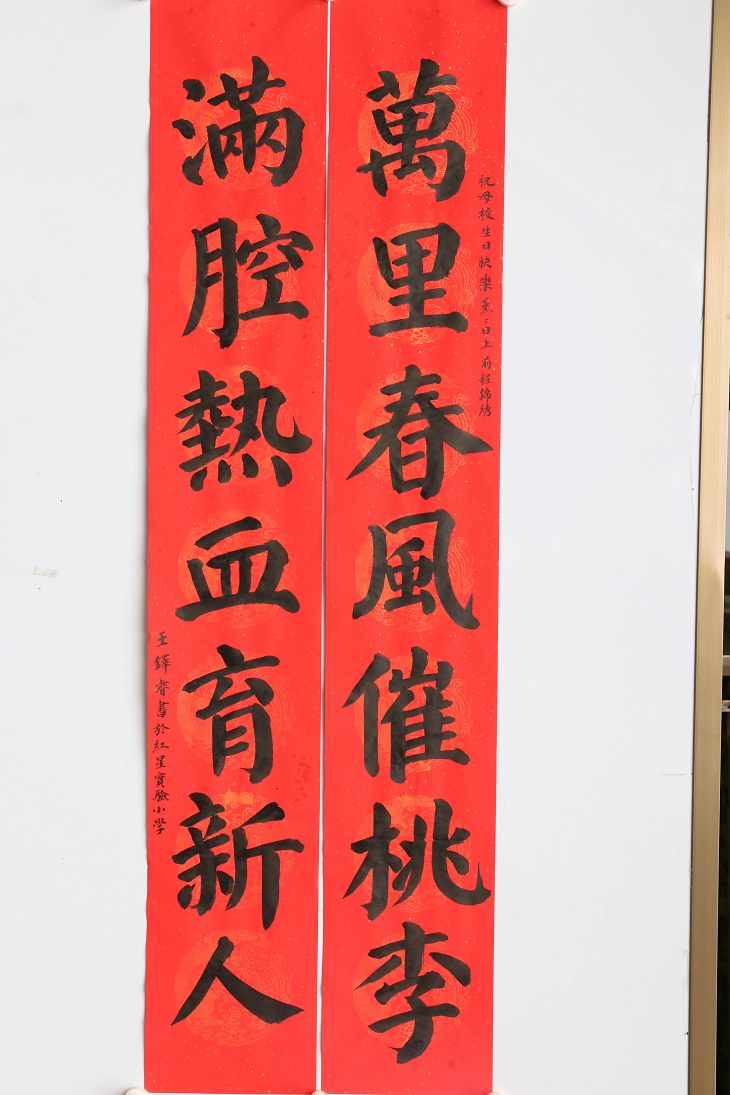 萬里春風催桃李
祝母校生日快樂蒸々日上前程錦绣
滿腔熱血育新人
王鐸睿書於紅星實驗小學